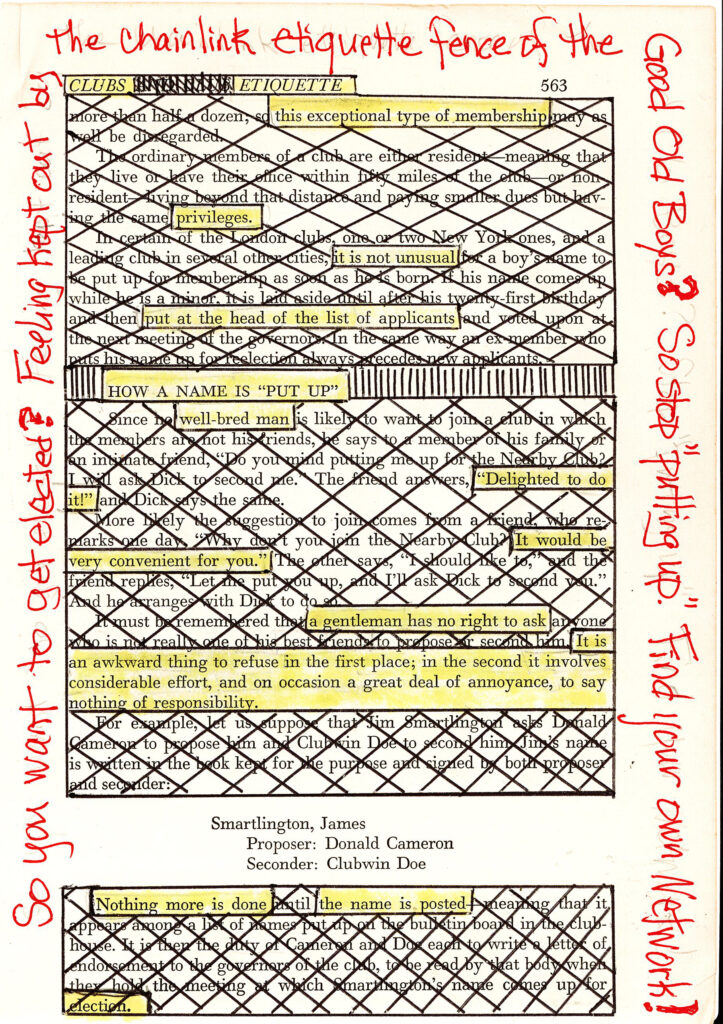 So you want to get elected? Feeling kept out by
the chainlink etiquette fence of the
Good Old Boys? So stop "putting up." Find your own Network!
CLUBS ETIQUETTE 563
more than half a dozen; so this exceptional type of membership may as
well be disregarded.
The ordinary members of a club are either resident—meaning that
they live or have their office within fifty miles of the club—or non-
resident—living beyond that distance and paying smaller dues but hav-
ing the same privileges.
In certain of the London clubs, one or two New York ones, and a
leading club in several other cities, it is not unusual for a boy's name to
be put up for membership as soon as he is born. If his name comes up
while he is a minor, it is laid aside until after his twenty-first birthday
and then put at the head of the list of applicants and voted upon at
the next meeting of the governors. In the same way an ex-member who
puts his name up for reelection always precedes new applicants.
HOW A NAME IS "PUT UP"
Since no well-bred man is likely to want to join a club in which
the members are not his friends, he says to a member of his family or
an intimate friend, "Do you mind putting me up for the Nearby Club?
I will ask Dick to second me." The friend answers, "Delighted to do
it!" and Dick says the same.
More likely the suggestion to join comes from a friend, who re-
marks one day, "Why don't you join the Nearby Club? It would be
very convenient for you." The other says, "I should like to," and the
friend replies, "Let me put you up, and I'll ask Dick to second you."
And he arranges with Dick to do so.
It must be remembered that a gentleman has no right to ask anyone
who is not really one of his best friends to propose or second him. It is
an awkward thing to refuse in the first place; in the second it involves
considerable effort, and on occasion a great deal of annoyance, to say
nothing of responsibility.
For example, let us suppose that Jim Smartlington asks Donald
Cameron to propose him and Clubwin Doe to second him. Jim's name
is written in the book kept for the purpose and signed by both proposer
and seconder:
Smartlington, James
Proposer: Donald Cameron
Seconder: Clubwin Doe
Nothing more is done until the name is posted—meaning that it
appears among a list of names put up on the bulletin board in the club-
house. It is then the duty of Cameron and Doe each to write a letter of
endorsement to the governors of the club, to be read by that body when
they hold the meeting at which Smartlington's name comes up for
election.